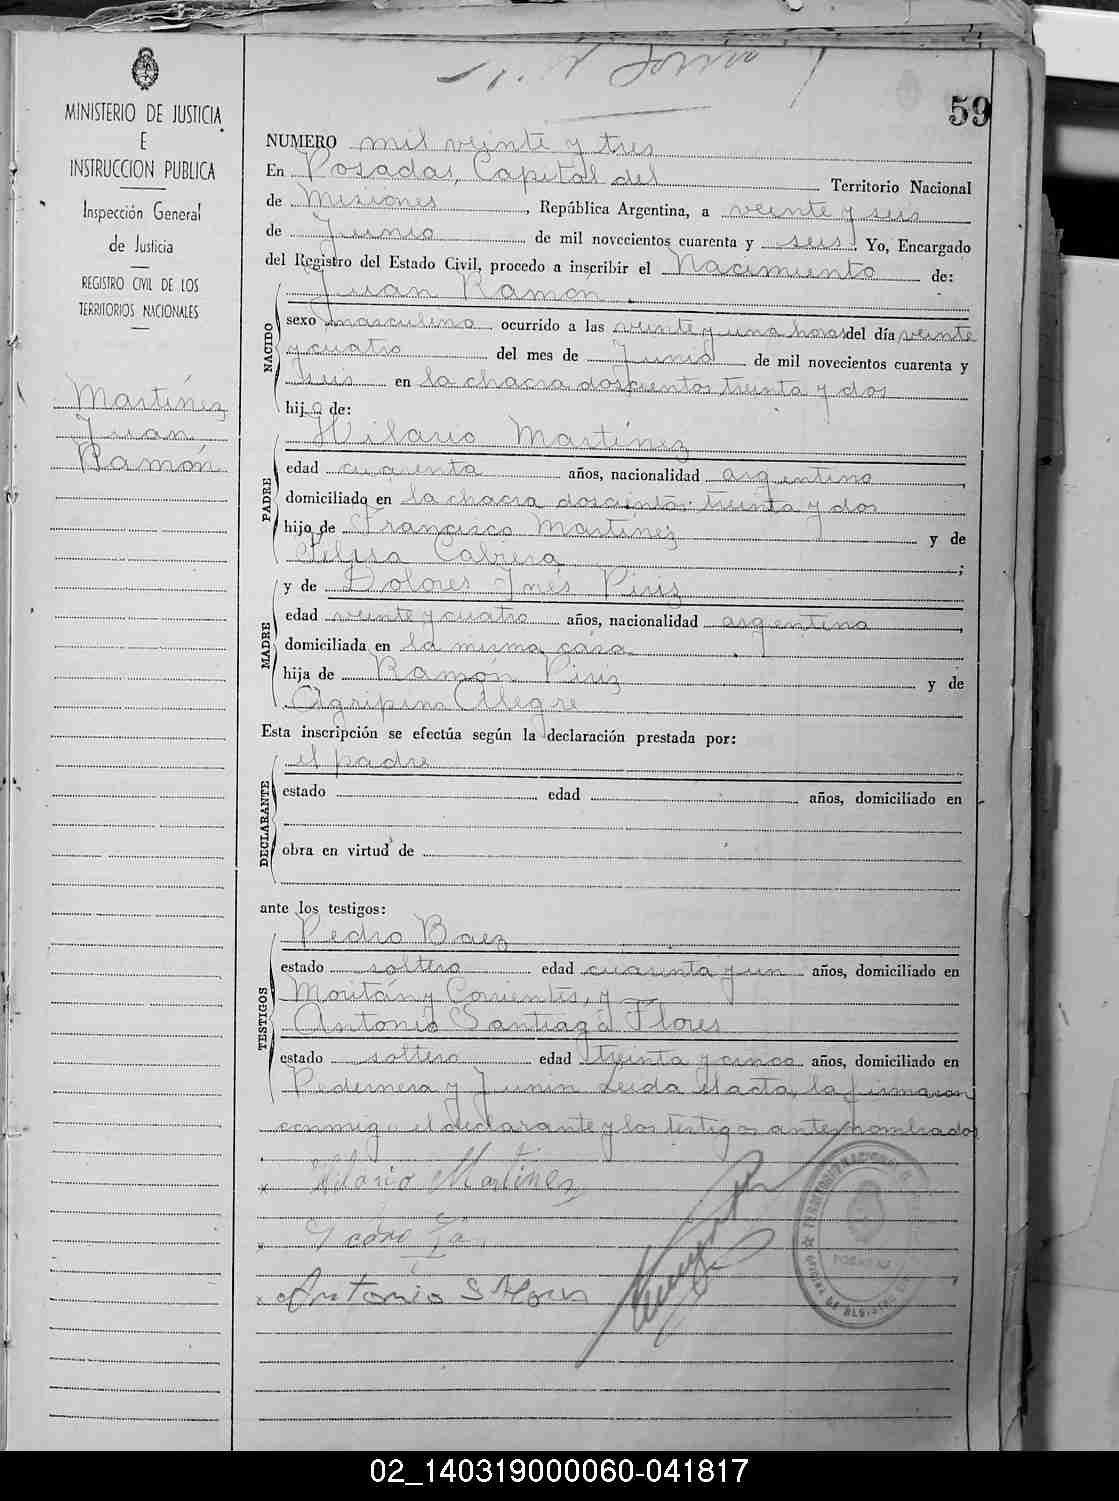 59
MINISTERIO DE JUSTICIA
E
INSTRUCCION PUBLICA
Inspección General
de Justicia
REGISTRO CIVIL DE LOS
TERRITORIOS NACIONALES
Martínez
Juan
Ramón
NUMERO mil veinte y tres
En Posadas, Capital del Territorio Nacional
de Misiones, República Argentina, a veinte y seis
de Junio de mil novecientos cuarenta y seis Yo, Encargado
del Registro del Estado Civil, procedo a inscribir el Nacimiento de:
Juan Ramón
NACIDO
sexo masculino ocurrido a las veinte y una horas del día veinte
y cuatro del mes de Junio de mil novecientos cuarenta y
seis en la chacra doscientos treinta y dos
hijo de:
Hilario Martínez
PADRE
edad cuarenta años, nacionalidad argentino,
domiciliado en la chacra doscientos treinta y dos
hijo de Francisco Martínez y de
Cabrera;
y de Dolores Inés Piriz
MADRE
edad veinte y cuatro años, nacionalidad argentina,
domiciliada en la misma casa
hija de Ramón Piriz y de
Agripina Alegre
Esta inscripción se efectúa según la declaración prestada por:
el padre
DECLARANTE
estado edad años, domiciliado en
obra en virtud de
ante los testigos:
Pedro Baez
TESTIGOS
estado soltero edad cuarenta y un años, domiciliado en
Moritán y Corrientes, y
Antonio Santiago Flores
estado soltero edad treinta y cinco años, domiciliado en
Pedernera y Junin Leida el acta, la firmaron
conmigo el declarante y los testigos antes nombrados
Hilario Martinez
Antonio S Flores
POSADAS
02_140319000060-041817